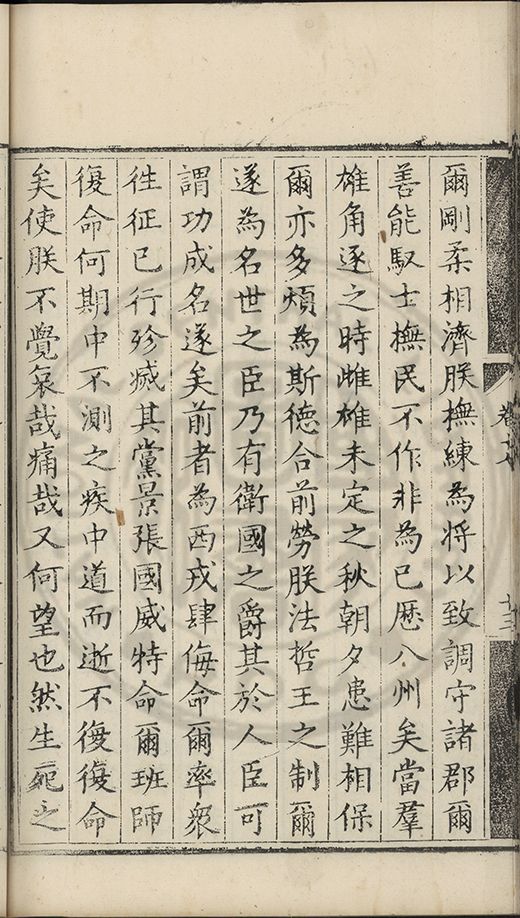 卷十八
十三
爾剛柔相濟朕撫練為将以致調守諸郡爾
善能馭士撫民不作非為已歷八州矣當羣
雄角逐之時雌雄未定之秋朝夕患難相保
爾亦多煩為斯德合前勞朕法哲王之制爾
遂為名世之臣乃有衛國之爵其於人臣可
謂功成名遂矣前者為西戎肆侮命爾率衆
徃征已行殄㓕其黨景張國威特命爾班師
復命何期中不測之疾中道而逝不復復命
矣使朕不覺哀哉痛哉又何望也然生死之